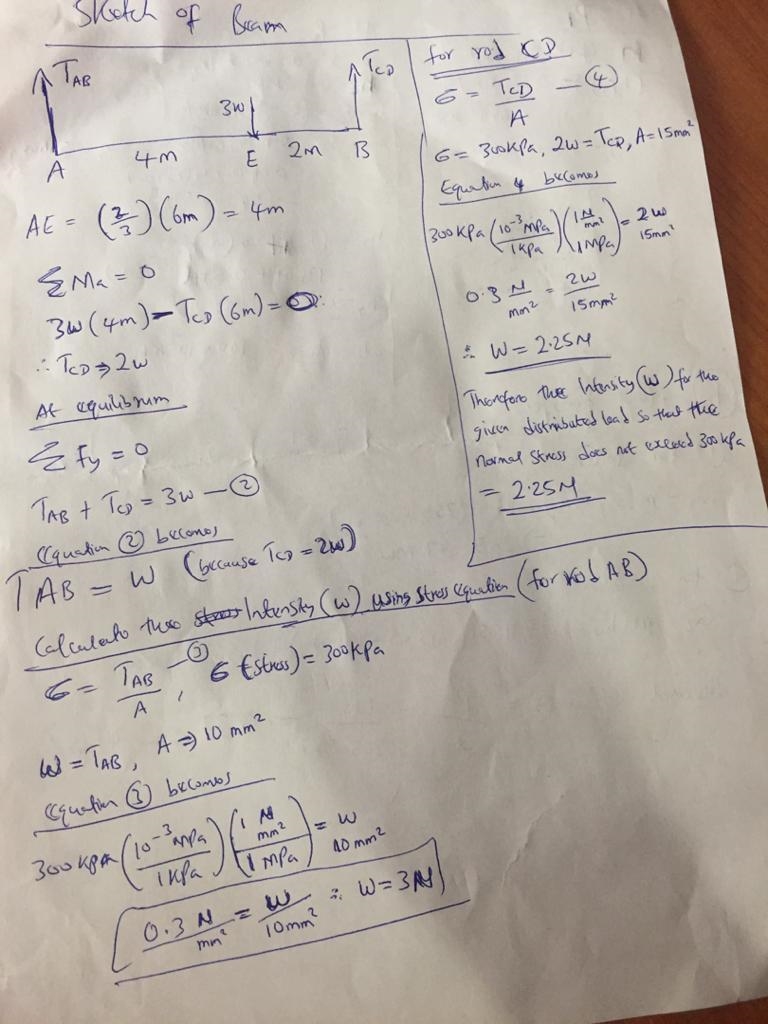 Sketch of Beam
TAB
TCD
3w
A
4m
E
2m
B
AE = (2/3)(6m) = 4m
∑Ma = 0
3w(4m) - TCD(6m) = 0
∴ TCD ⇒ 2w
At equilibrum
∑Fy = 0
TAB + TCD = 3w — ②
Equation ② becomes
TAB = W (because TCD = 2w)
Calculate thee Intensity (W) using stress equation (for rod AB)
σ = TAB/A — ③, σ (stress) = 300kPa
W = TAB, A ⇒ 10 mm²
Equation ③ becomes
300 kPa (10⁻³ MPa / 1 kPa) (1 N/mm² / 1 MPa) = W / 10 mm²
0.3 N/mm² = W/10mm² ∴ W = 3N
for rod CD
σ = TCD/A — ④
σ = 300kPa, 2w = TCD, A = 15mm²
Equation 4 becomes
300kPa (10⁻³ MPa / 1 kPa) (1 N/mm² / 1 MPa) = 2w / 15mm²
0.3 N/mm² = 2w/15mm²
∴ W = 2.25N
Therefore thee Intensity (W) for the
given distributed load so that thee
normal stress does not exceed 300kPa
= 2.25N